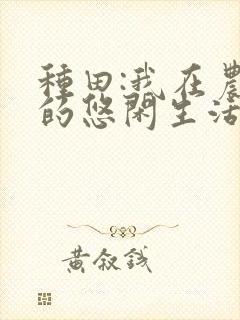 種田:我在農
的悠閑生活
黃叙錢